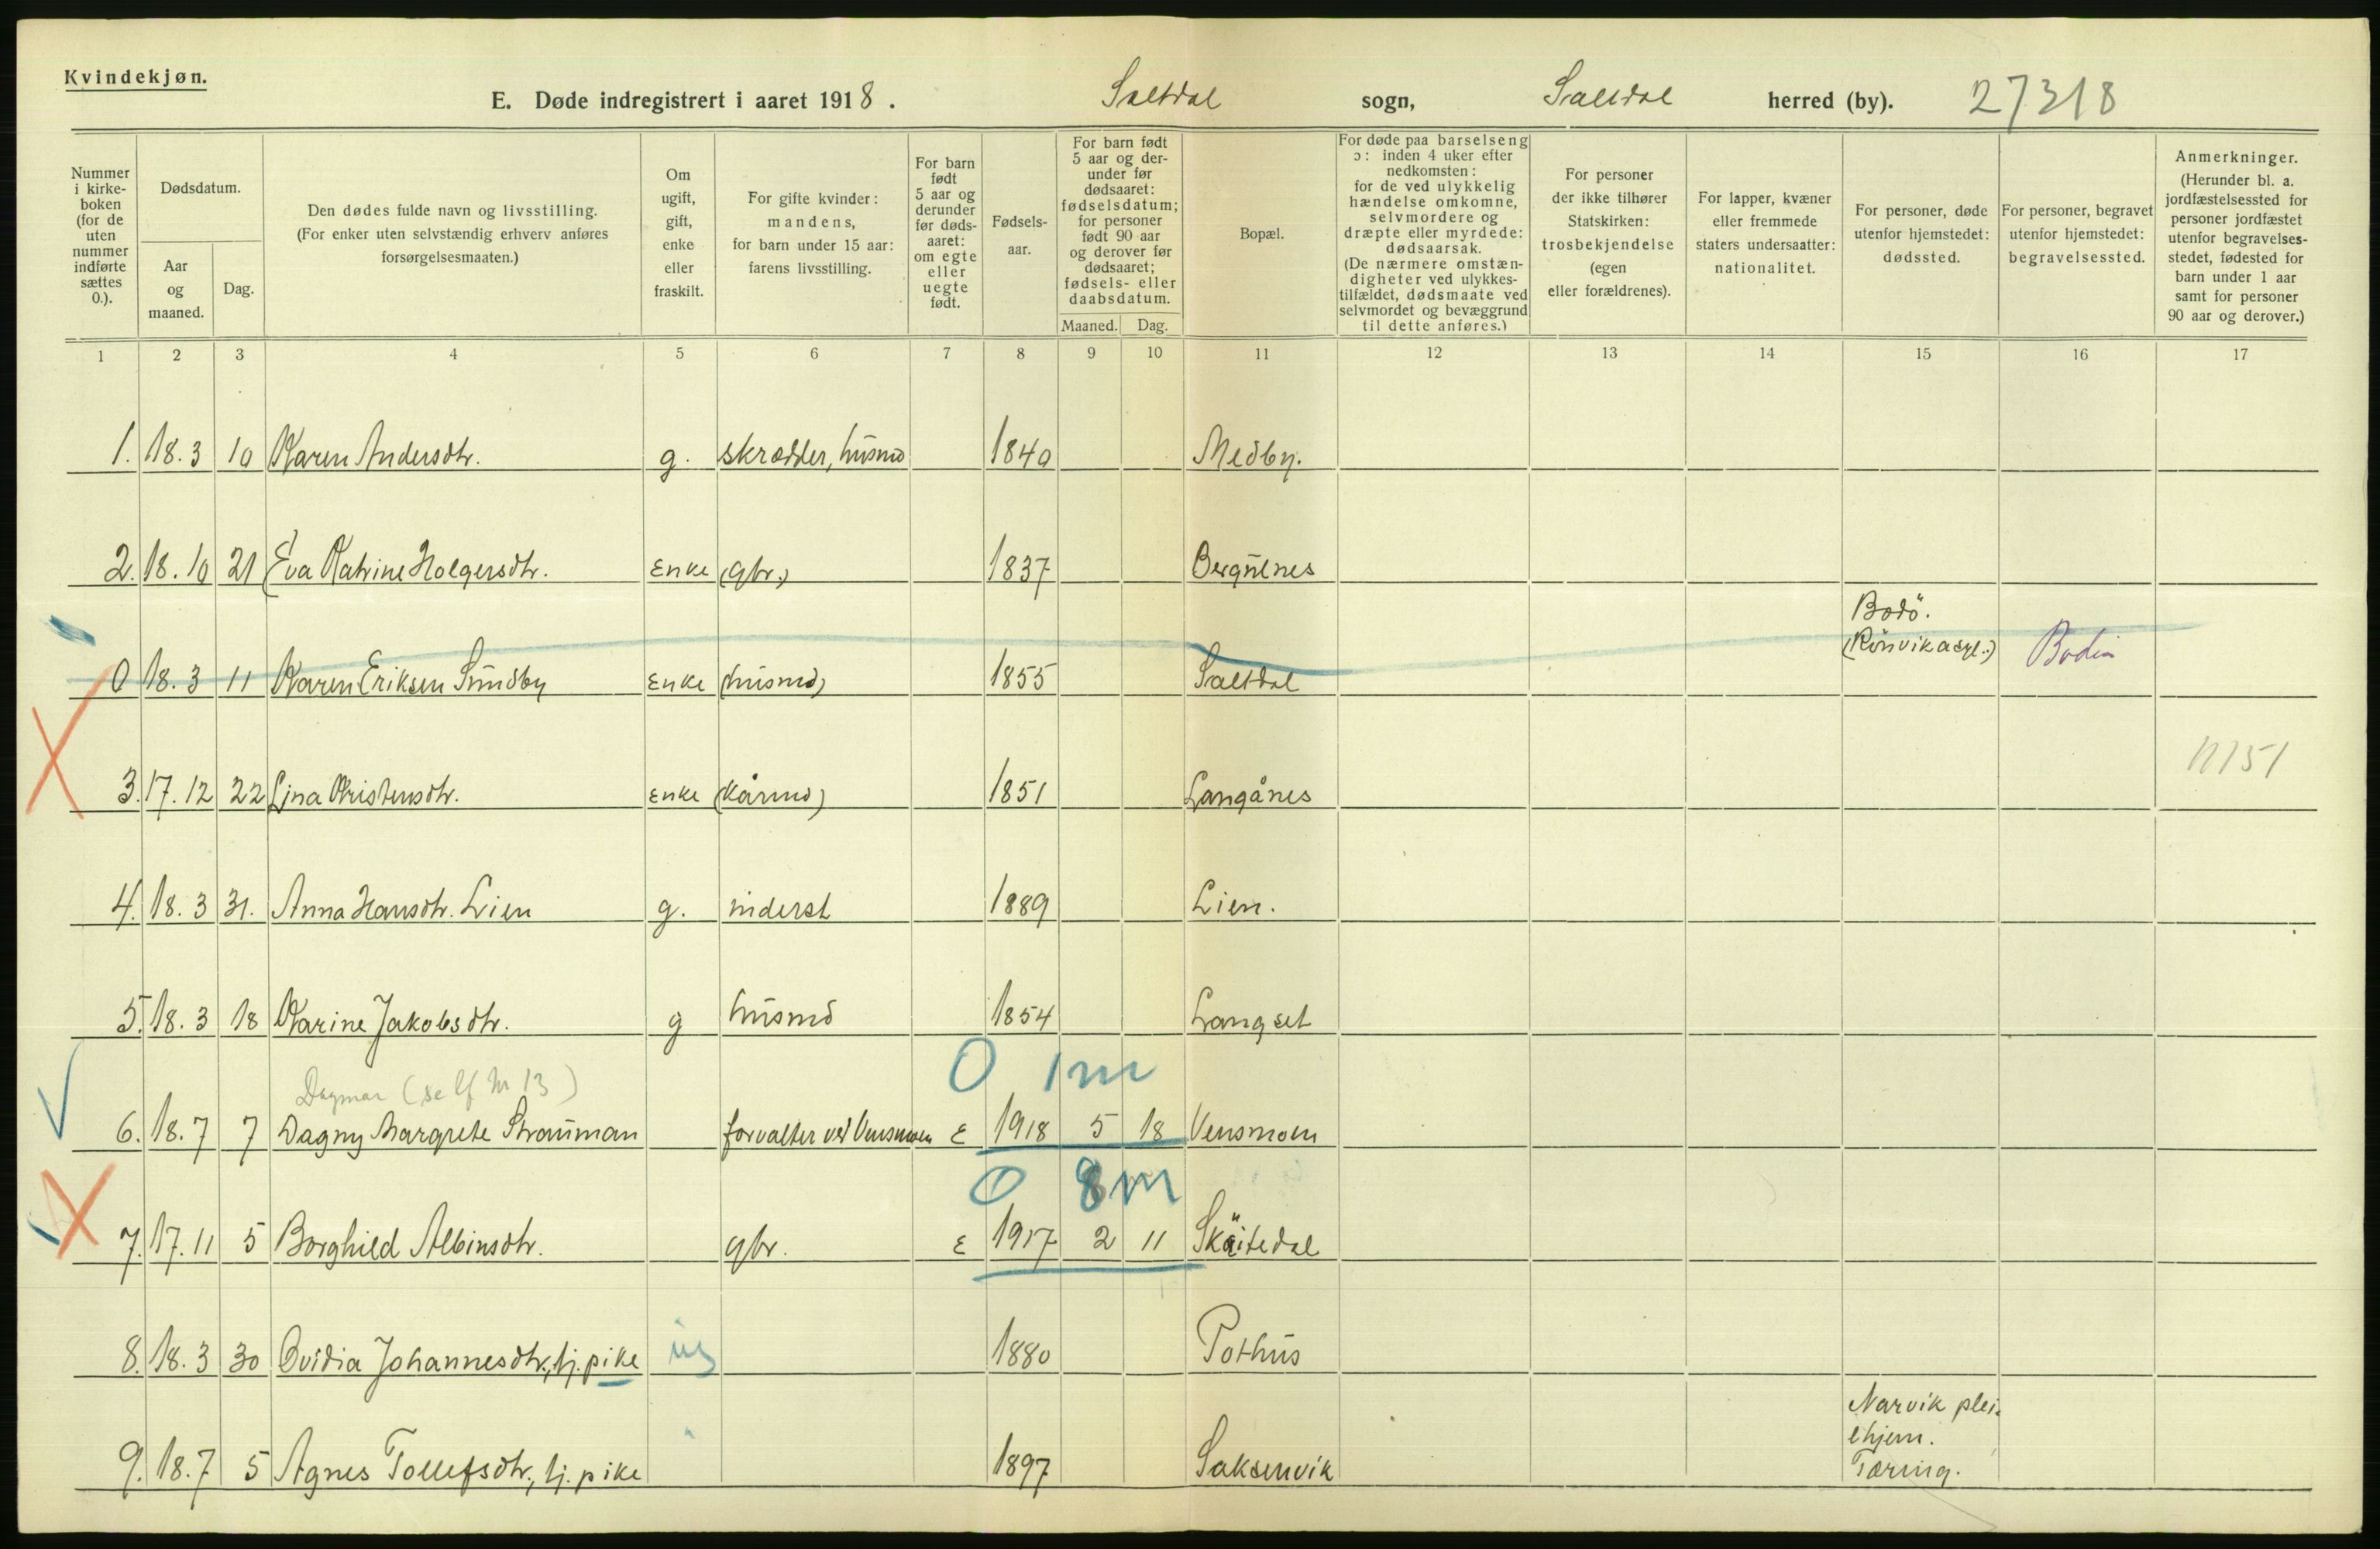 Kvindekjøn.
E. Døde indregistrert i aaret 1918. Saltdal sogn, Saltdal herred (by). 27318
Nummer i kirke-boken (for de uten nummer indførte sættes 0.).
Dødsdatum.
Aar og maaned.
Dag.
Den dødes fulde navn og livsstilling.
(For enker uten selvstændig erhverv anføres
forsørgelsesmaaten.)
Om ugift, gift, enke eller fraskilt.
For gifte kvinder: mandens, for barn under 15 aar: farens livsstilling.
For barn født 5 aar og derunder før døds-aaret: om egte eller uegte født.
Fødsels-aar.
For barn født 5 aar og der-under før dødsaaret: fødselsdatum; for personer født 90 aar og derover før dødsaaret; fødsels- eller daabsdatum.
Maaned. Dag.
Bopæl.
For døde paa barselseng ɔ: inden 4 uker efter nedkomsten: for de ved ulykkelig hændelse omkomne, selvmordere og dræpte eller myrdede: dødsaarsak. (De nærmere omstæn-digheter ved ulykkes-tilfældet, dødsmaate ved selvmordet og bevæggrund til dette anføres.)
For personer der ikke tilhører Statskirken: trosbekjendelse (egen eller forældrenes).
For lapper, kvæner eller fremmede staters undersaatter: nationalitet.
For personer, døde utenfor hjemstedet: dødssted.
For personer, begravet utenfor hjemstedet: begravelsessted.
Anmerkninger. (Herunder bl. a. jordfæstelsessted for personer jordfæstet utenfor begravelses-stedet, fødested for barn under 1 aar samt for personer 90 aar og derover.)
1 2 3 4 5 6 7 8 9 10 11 12 13 14 15 16 17
1. 18.3 10 Karen Andersdtr. g. skrædder, husmd 1840 Medby.
2. 18.10 21 Eva Katrine Holgersdtr. Enke (gbr.) 1837 Bergulnes
Bodö.
(Rönvik asyl.) Bodin
0 18.3 11 Karen Eriksen Sundby Enke (husmd) 1855 Saltdal
3. 17.12 22 Lina Kristensdtr. Enke (kårmd) 1851 Langånes 11151
4. 18.3 31. Anna Hansdtr. Lien g. inderst 1889 Lien.
5. 18.3 18 Karine Jakobsdtr. g husmd 1854 Langset
Dagmar (se lf nr 13) 0 1m
6. 18.7 7 Dagny Margrete Strauman forvalter ved Vensmoen E 1918 5 18 Vensmoen
0 8m
7. 17.11 5 Borghild Albinsdtr. gbr. E 1917 2 11 Skaitedal
8. 18.3 30 Ovidia Johannesdtr., tj. pike ug 1880 Pothus
Narvik plei-
ehjem.
9. 18.7 5 Agnes Tollefsdtr., tj. pike 1897 Saksenvik Tæring.